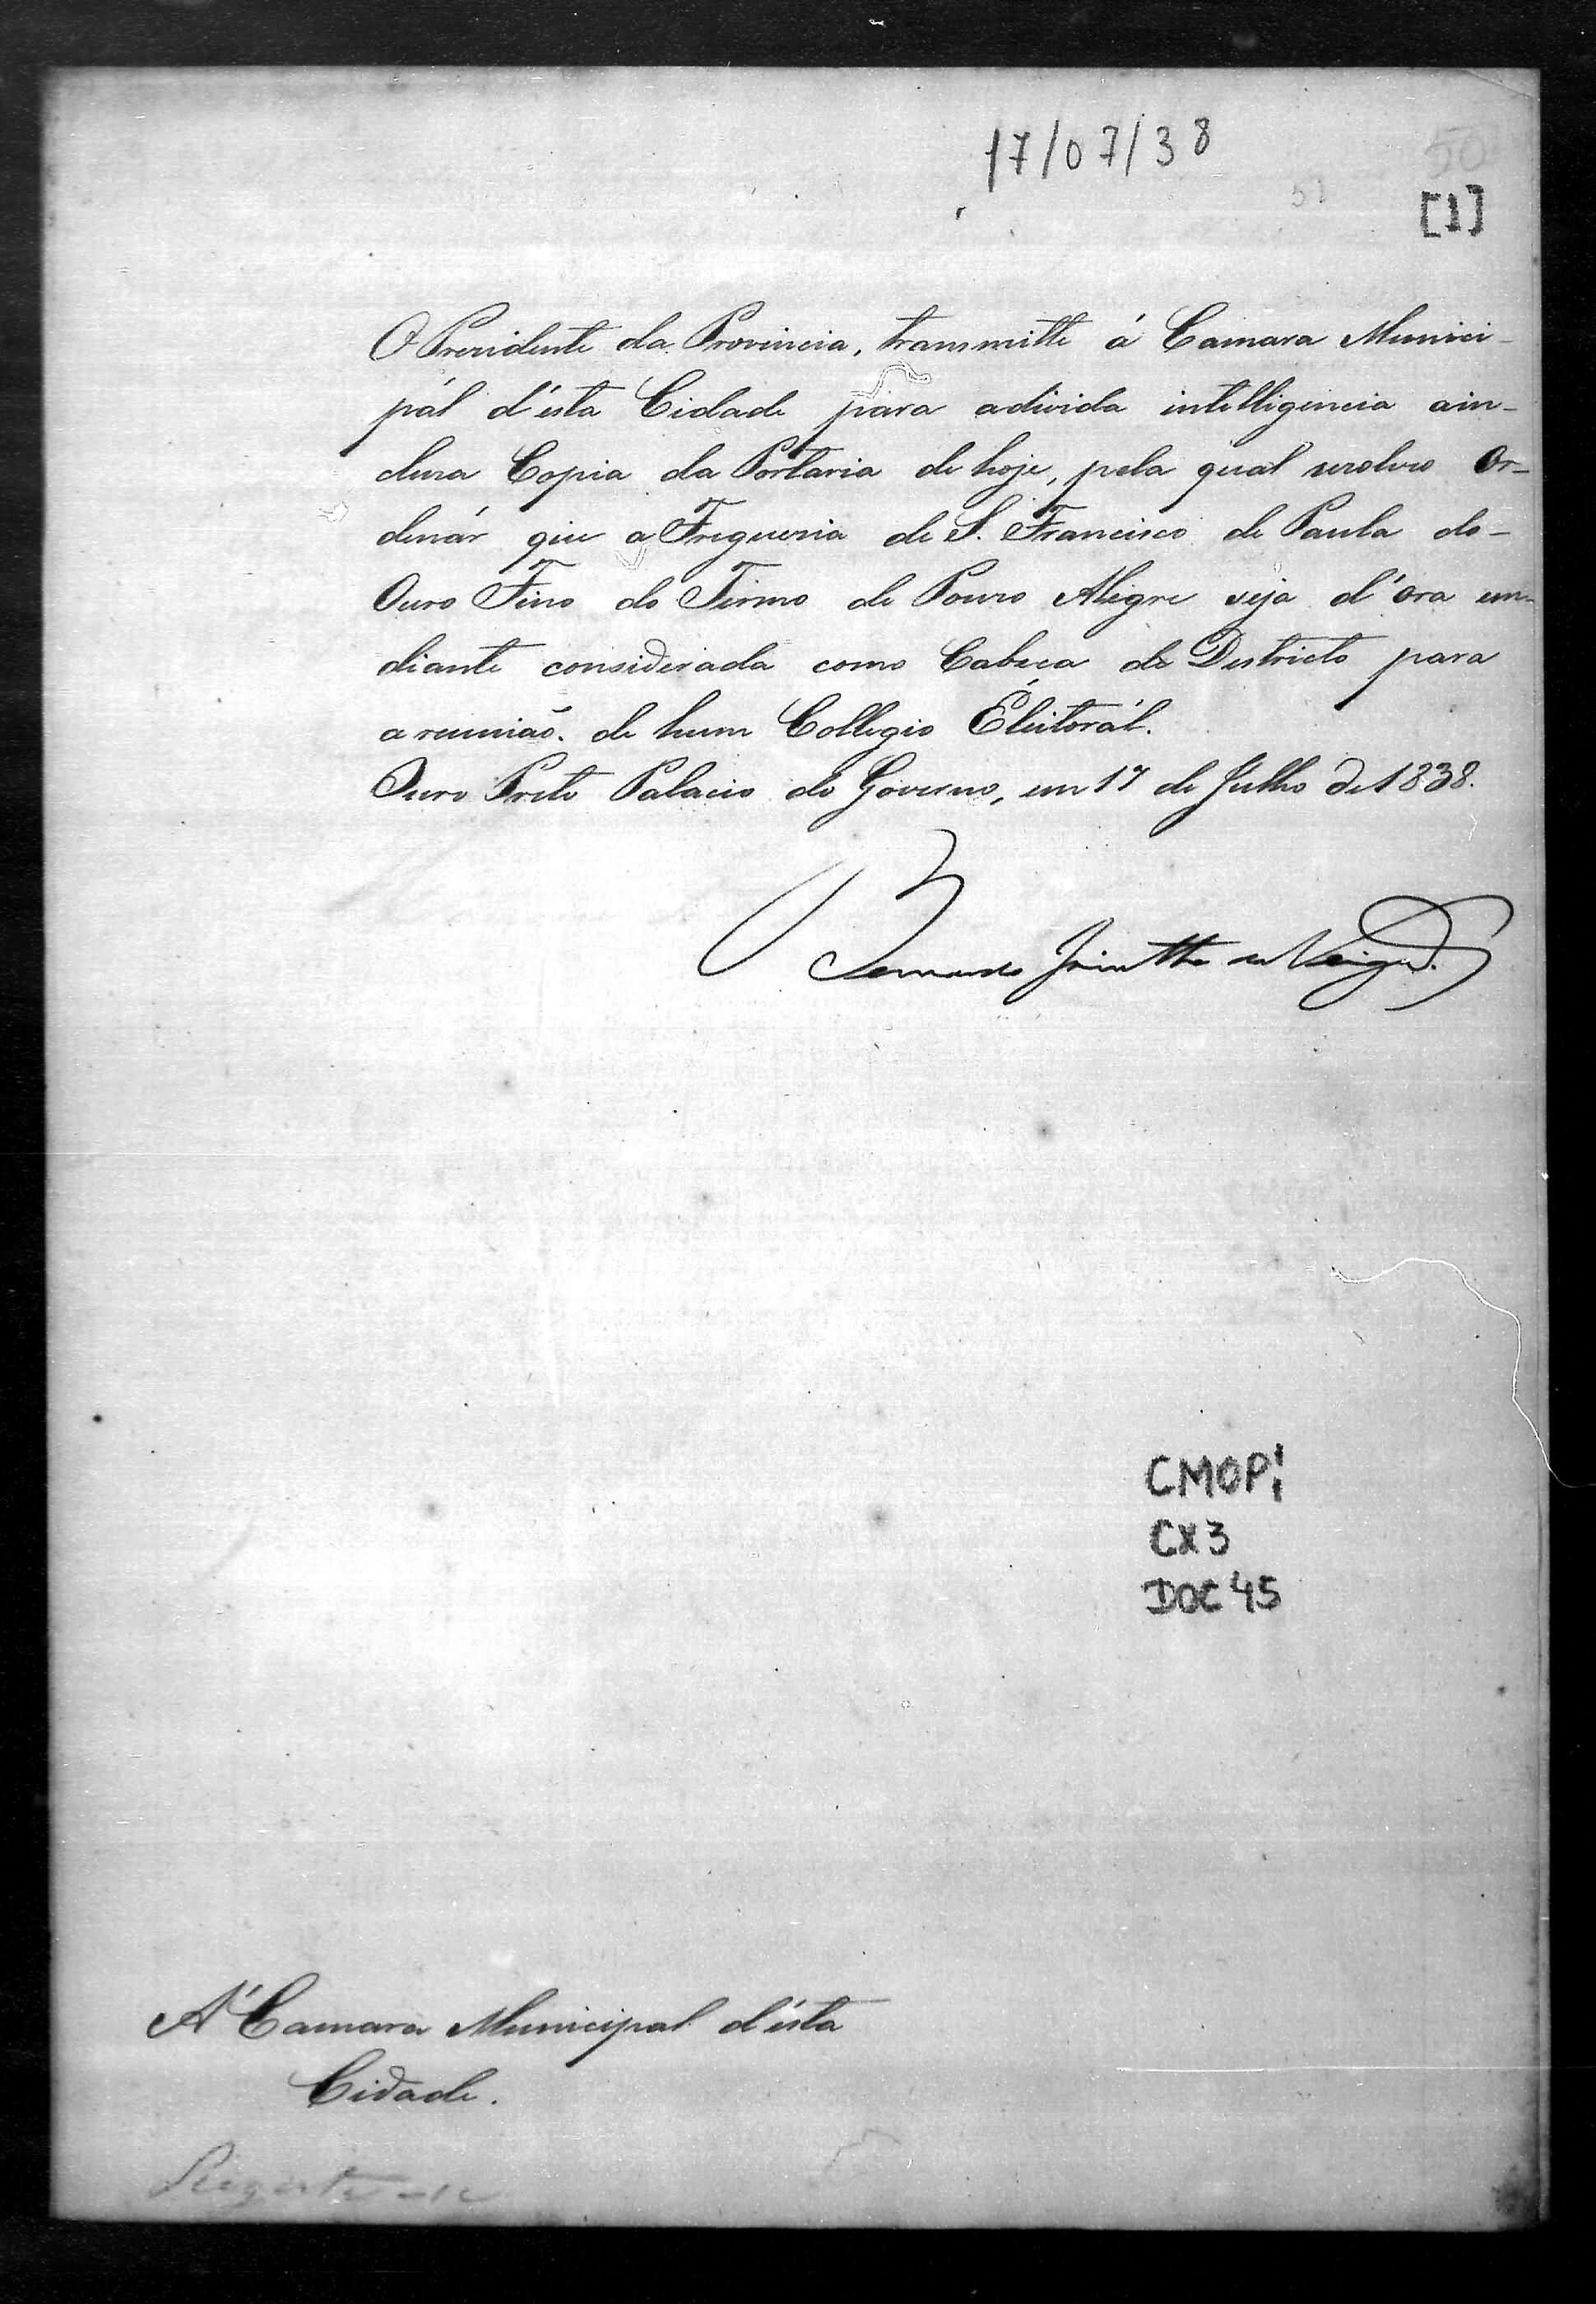 17/07/38
50
51
[1]
O Prezidente da Provincia, transmitte á Camara Munici-
pál d'ésta Cidade para adivida intelligencia ain-
cluza Copia da Portaria de hoje, pela qual rezolveo Or-
denár que a Freguezia de S. Francisco de Paula do-
Ouro Fino do Termo de Pouzo Alegre seja d'óra em-
diante considerada como Cabeca de Districto para
a reunião. de hum Collegio Éleitorál.
Ouro Preto Palacio do Governo, em 17 de Julho de 1838.
Bernardo Jacintho da Veiga.
CMOP
CX3
DOC 45
A' Camara Municipal d'ésta
Cidade.